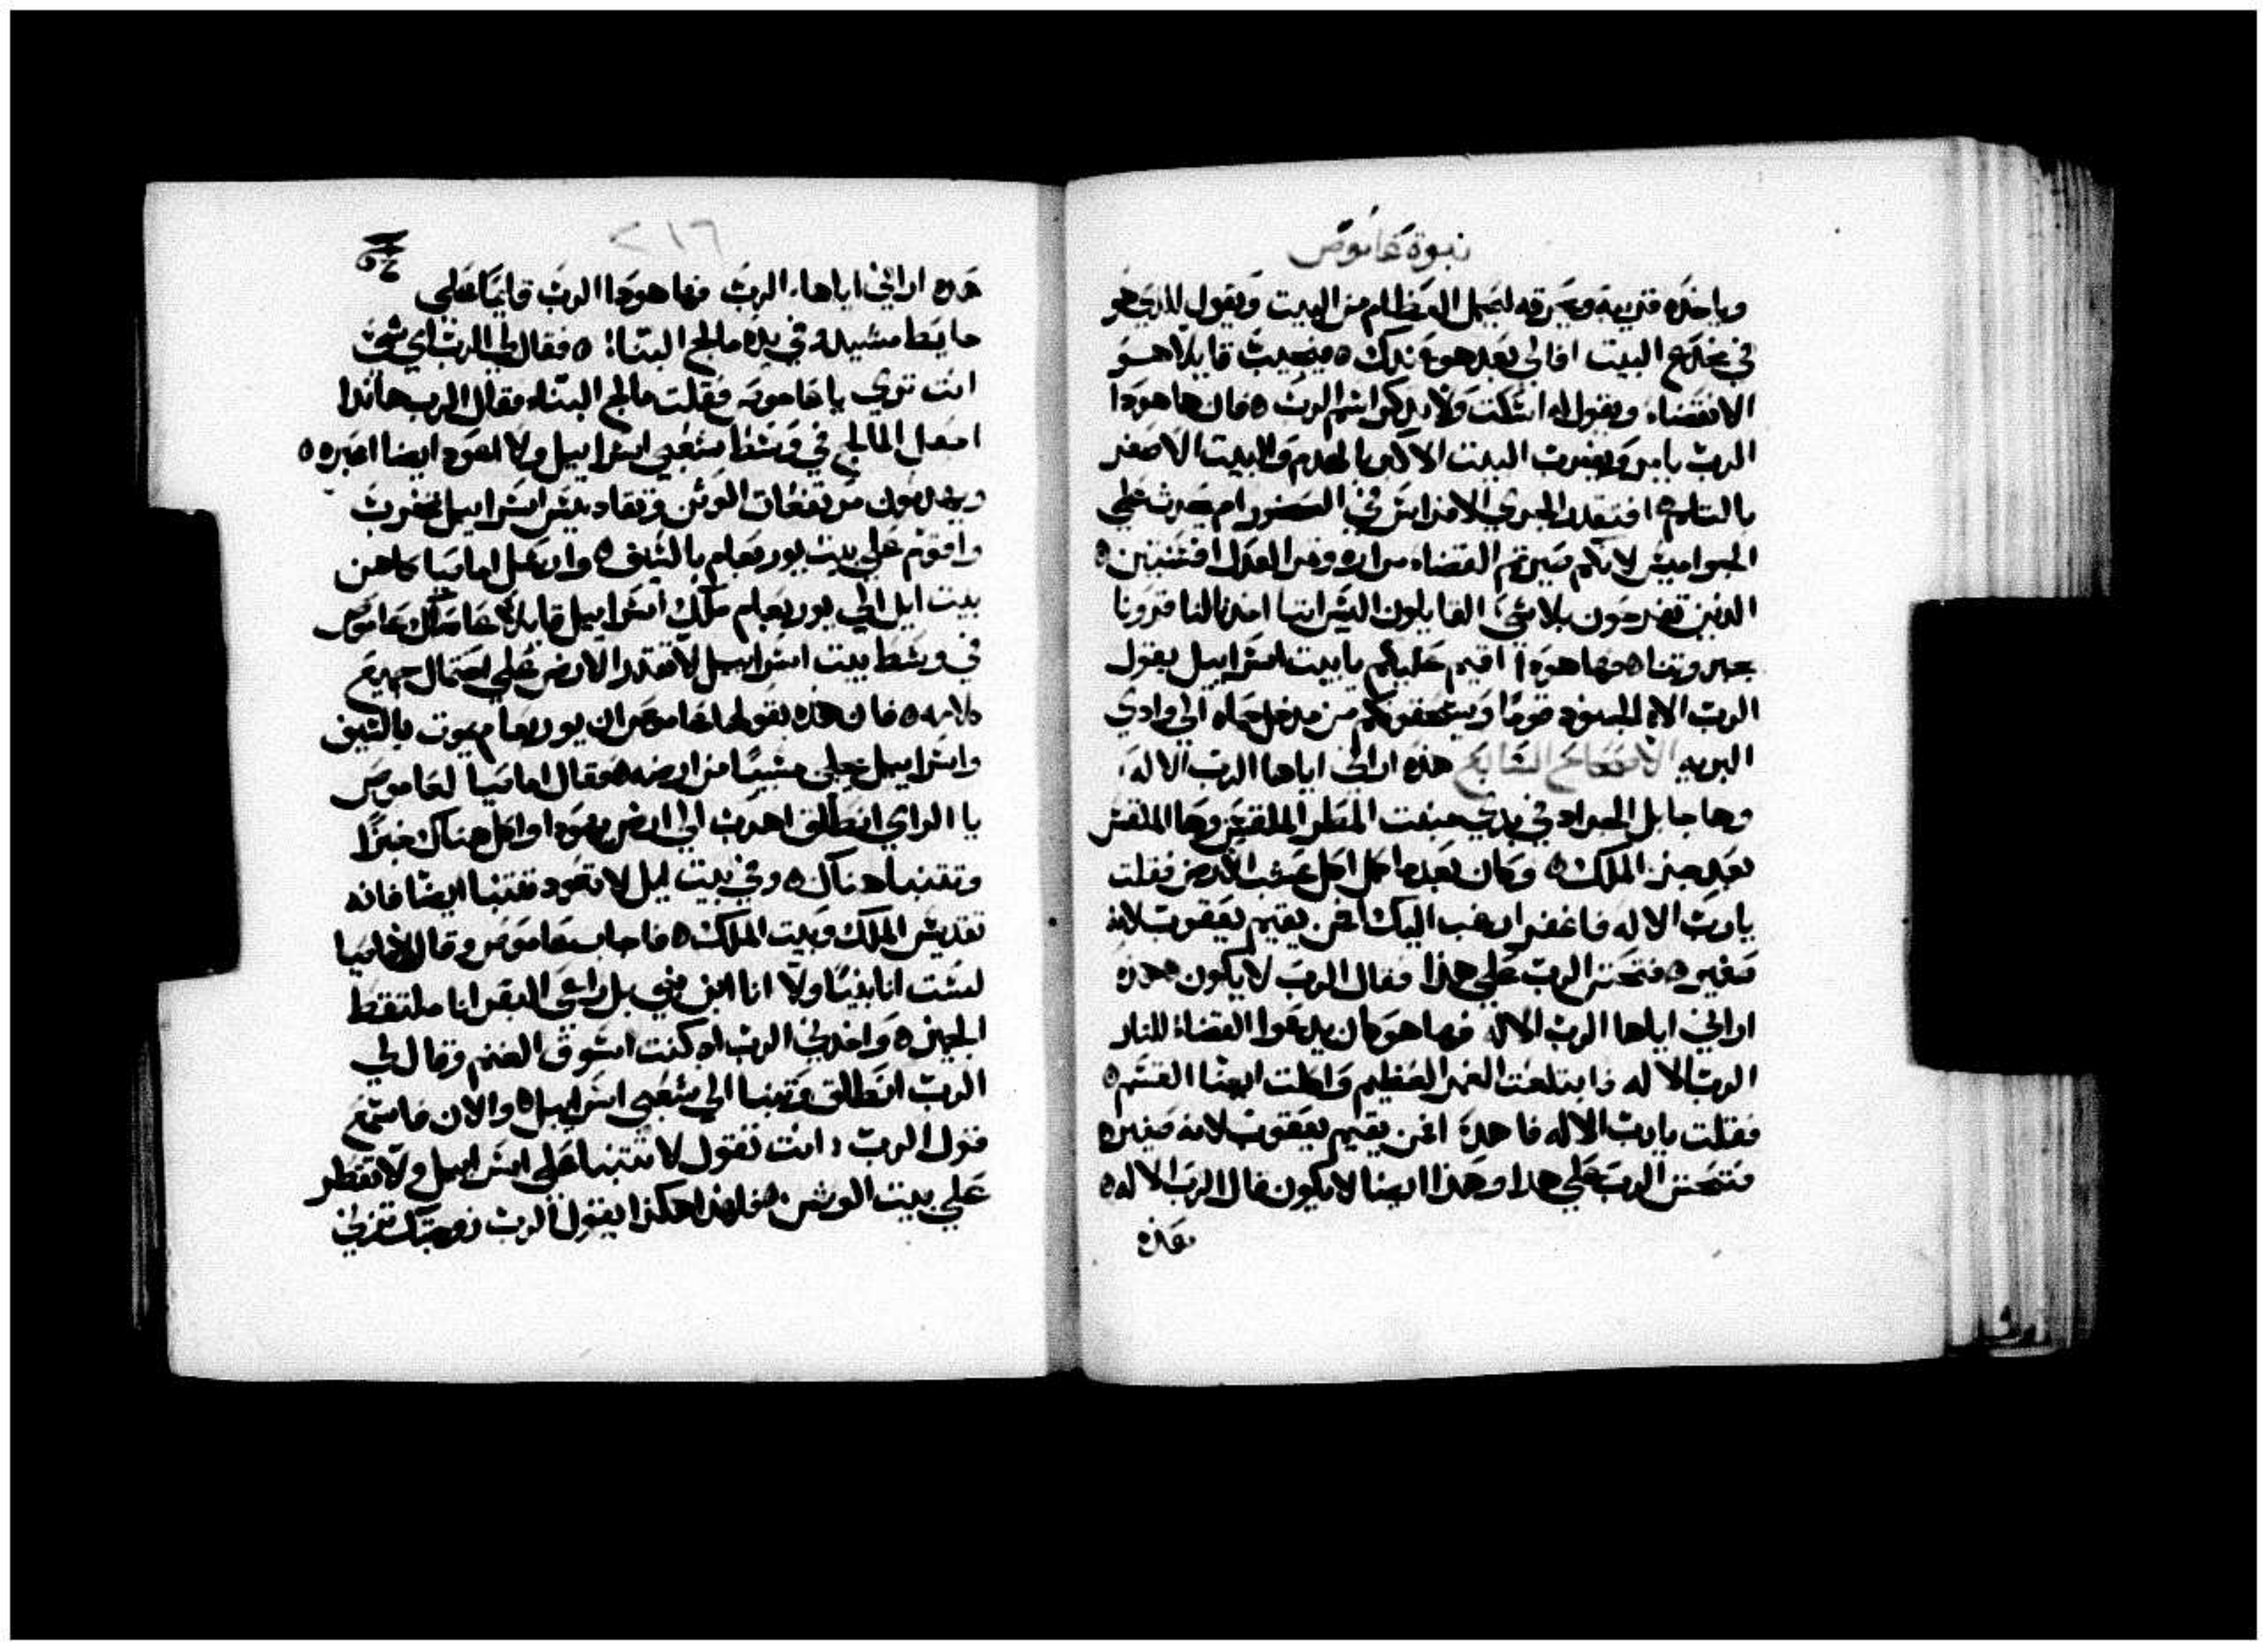 نبوة عاموص
وياخذه قريبه ويحرقه ليحمل العظام من البيت ويقول للذي هو
في مخدع البيت افالي بعد هو عندك ه فيجيب قايلا هو
الانقضاء ويقول له اسكت ولا يذكر اسم الرب ه فان ها هوذا
الرب يامر ويضرب البيت الاكبر بالهدم والبيت الاصغر
بالثلم ه افتقدر تجري الافراس في الصخور ام يحرث علي
الجواميس لانكم صيرتم القضاء مراره وثمر العدل افسنتين ه
الذين تفرحون بلا شي القايلون اليس اننا اخذنا لنا قرونا
بجبروتنا ه فها هوذا اقيم عليكم يا بيت اسراييل يقول
الرب الاه الجنود قوما ويسحقونكم من مدخل حماه الي وادي
البريه الاصحاح السابع هذه اراني اياها الرب الاله
وها جابل الجراد في بدي منبت المطر الملقس وها الملقس
بعد جز الملك ه وكان بعدما كمل اكل عشب الارض فقلت
يا رب الاله فاغفر ارغب اليك من يقيم يعقوب لانه
صغير ه فتحنن الرب علي هذا فقال الرب لا يكون ه هذه
اراني اياها الرب الاله فها هو كان يدعوا القضاء للنار
الرب الاله فابتلعت الغمر العظيم واكلت ايضا القسم ه
فقلت يا رب الاله فاهدا من يقيم يعقوب لانه صغير ه
فتحنن الرب علي هذا وهذا ايضا لا يكون قال الرب الاله ه
هذه
٢١٦
هذه اراني اياها الرب فها هوذا الرب قايما علي
حايط مشيد وفي يده مالج البنا ه فقال لي الرب اي شي
انت تري يا عاموص فقلت مالج البناء فقال الرب هانذا
اجعل المالج في وسط شعبي اسراييل ولا اعود ايضا اعبره ه
ويهدمون مرتفعات الوثن وتقاديس اسراييل تخرب
واقوم علي بيت يوربعام بالسيف ه وارسل اماصيا كاهن
بيت ايل الي يوربعام ملك اسراييل قايلا عاصاك عاموص
في وسط بيت اسراييل لا تقدر الارض علي احتمال جميع
كلامه ه فان هذه يقولها عاموص ان يوربعام يموت بالسيف
واسراييل يجلي مسبيا من ارضه ه فقال اماصيا لعاموص
يا الراي انطلق اهرب الي ارض يهوذا وكل هناك خبزا
وتتنبا هناك ه وفي بيت ايل لا تعود تتنبا ايضا فانه
تقديس الملك وبيت الملك ه فاجاب عاموص وقال لاماصيا
لست انا نبيا ولا انا ابن نبي بل راعي البقر انا ملتقط
الجميز ه واخذني الرب اذ كنت اسوق الغنم وقال لي
الرب انطلق وتنبا الي شعبي اسراييل ه والان فاسمع
قول الرب انت تقول لا تتنبا علي اسراييل ولا تقطر
علي بيت الوثن ه فلهذا هكذا يقول الرب زوجتك تزني